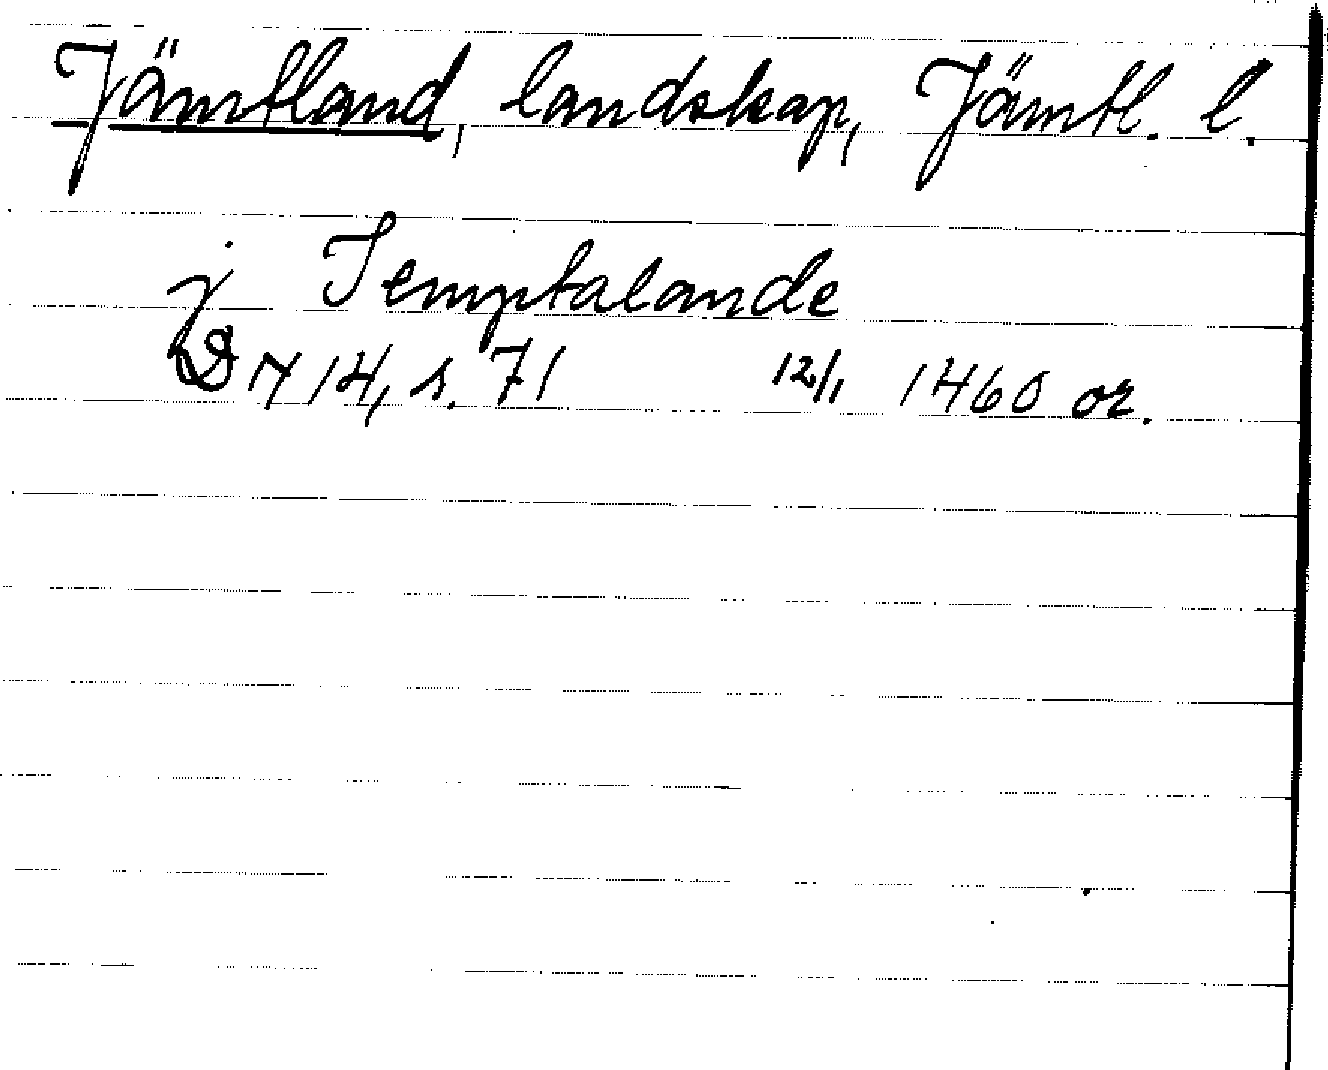 Jämtland, landskap, Jämtl. l.
j Jemptalande
D 714, s. 71 12/1 1460 or.